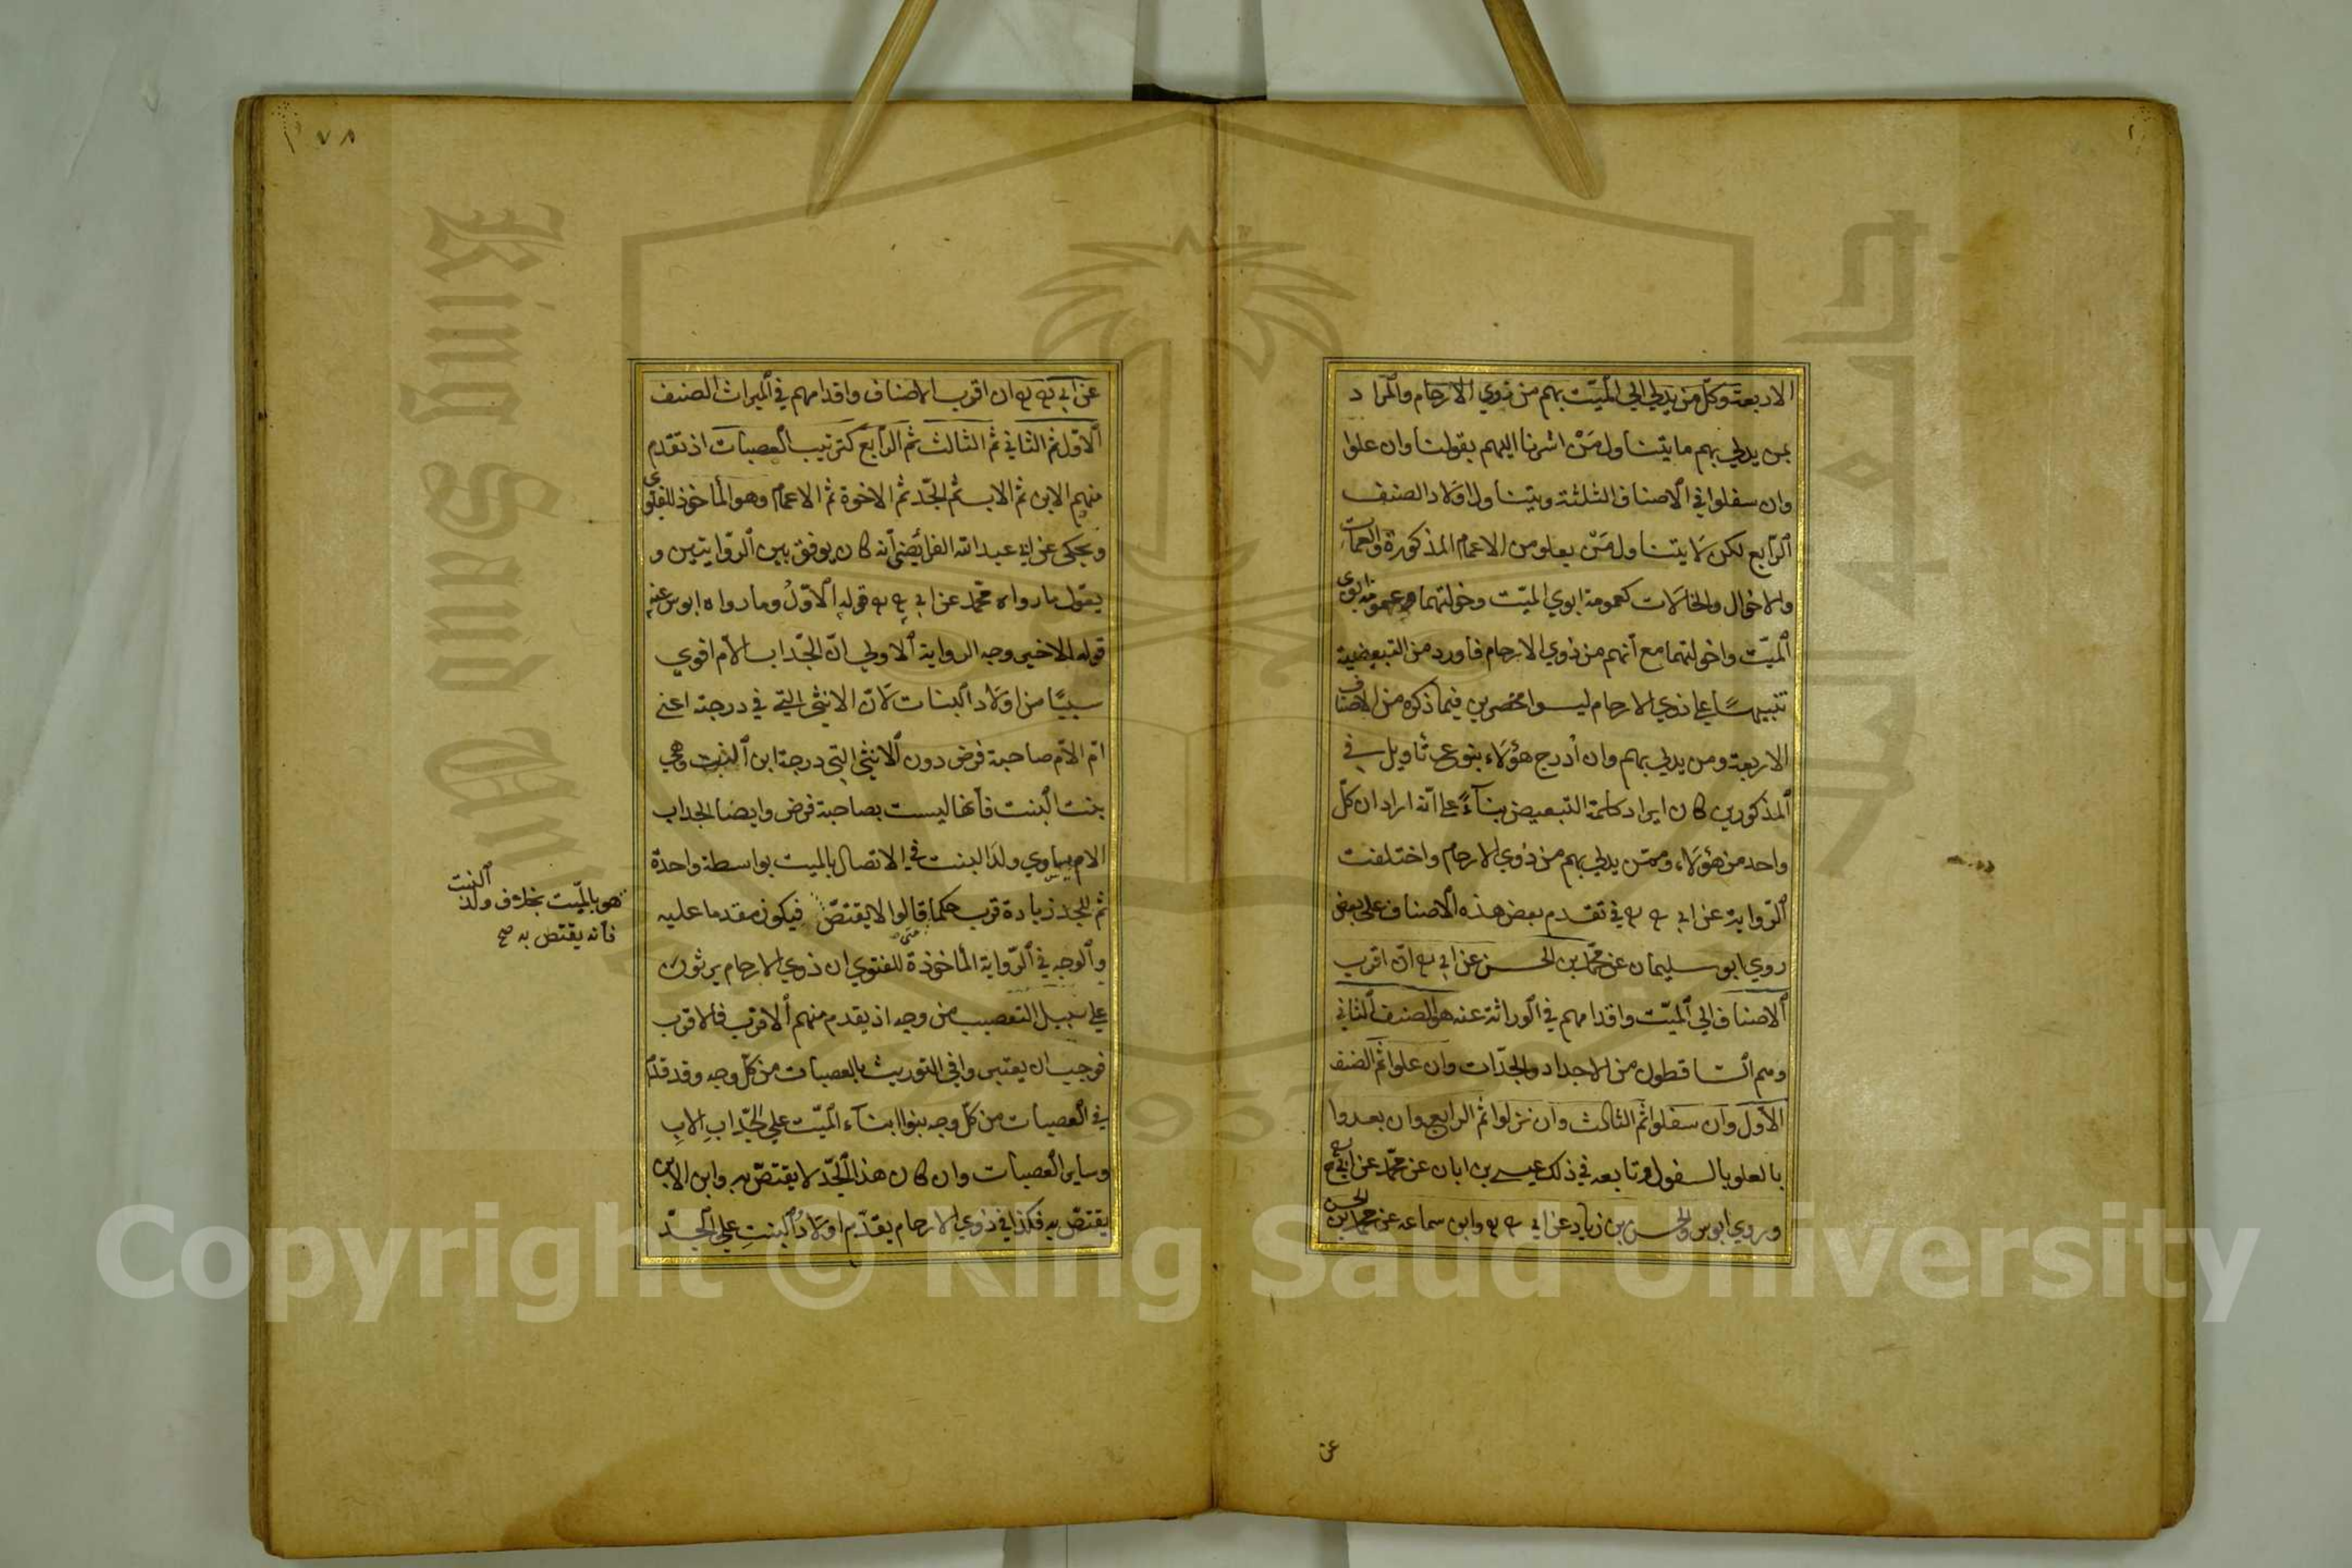 الاربعة وكل من يدلي الي الميت بهم من ذوي الارحام والمراد
بمن يدلي بهم ما يتناول مَنْ اشرنا اليهم بقولنا وان علوا
وان سفلوا في الاصناف الثلثة ويتناول اولاد الصنف
الرابع لكن لا يتناول مَنْ يعلو من الاعمام المذكورة والعمات
والاخوال والخالات كعمومة ابوي الميت وخولتهما وعمومة ابوي
الميت واخولتهما مع أنهم من ذوي الارحام فاورد من التبعيضية
تنبيهًا علي ذوي الارحام ليسوا محصرين فيما ذكره من الاصناف
الاربعة ومن يدلي بهم وان أدرج هؤلاء بنوع تأويل في
المذكورين كان ايراد كلمة التبعيض بناءً علي انه اراد ان كل
واحد من هؤلاء وممن يدلي بهم من ذوي الارحام واختلفت
الرواية عن ابي ح رح في تقدم بعض هذه الاصناف علي بعض
روي ابو سليمان عن محمد بن الحسن عن ابي ح ان اقرب
الاصناف الي الميت واقدامهم في الوراثة عنه هو الصنف الثاني
وهم الساقطون من الاجداد والجدات وان علوا ثم الصنف
الأول وان سفلوا ثم الثالث وان نزلوا ثم الرابع وان بعدوا
بالعلو بالسفول وتابعه في ذلك عيسي بن ابان عن محمد عن ابي ح
وروي ابو س والحسن بن زياد عن ابي ح رح وابن سماعه عن محمد بن الحسن
عن
١٧٨
عن ابي ح رح ان اقرب الاصناف واقدامهم في الميراث الصنف
الاول ثم الثاني ثم الثالث ثم الرابع كترتيب العصبات اذ تقدم
منهم الابن ثم الاب ثم الجد ثم الاخوة ثم الاعمام وهو المأخوذ للفتوى
ويحكى عن ابي عبد الله الفرائضي أنه كان يوفق بين الروايتين و
يقول ما رواه محمد عن ابي ح رح قوله الأولُ وما رواه ابو س عنه
قوله الاخير وجه الرواية الاولي انّ الجد اب الأم اقوي
سببًا من اولاد البنات لانّ الانثى التي في درجته اعني
ام الام صاحبة فرض دون الانثى التي درجة ابن البنت وهي
بنت البنت فأنها ليست بصاحبة فرض وايضا الجد اب
الام يساوي ولد البنت في الاتصال بالميت بواسطة واحدة
ثم للجد زيادة قرب حكما قالوا لا يقتصّ فيكون مقدما عليه
والوجه في الرواية المأخوذة للفتوي ان ذوي الارحام يرثون
علي سبيل التعصيب من وجه اذ يقدم منهم الاقرب فالاقرب
فوجب ان يعتبروا في التوريث بالعصبات من كل وجه وقد قدم
في العصبات من كل وجه بنوا ابناء الميت علي الجدّ ابِ الابِ
وساير العصبات وان كان هذا الجدّ لا يقتصّ به وابن الابن
يقتصّ به فكذا في ذوي الارحام يقدّم اولادُ البنتِ علي الجدّ
هو بالميت بخلاف ولد البنت
فأنه يقتص به صح
Copyright © King Saud University
King Saud Uni
1957